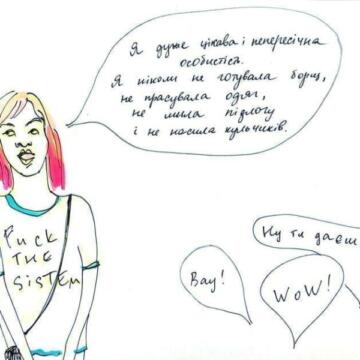 Я дуже цікава і непересічна
особистість.
Я ніколи не готувала борщ,
не прасувала одяг,
не мила підлогу
і не носила кульчиків.
Fuck
THE
SiSTEM
Ну ти даєш
Вау!
WOW!